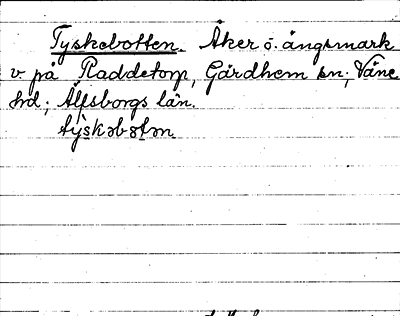 Tyskebotten. Åker o. ängsmark
v på Raddetorp, Gärdhem sn; Väne
hd; Älfsborgs län.